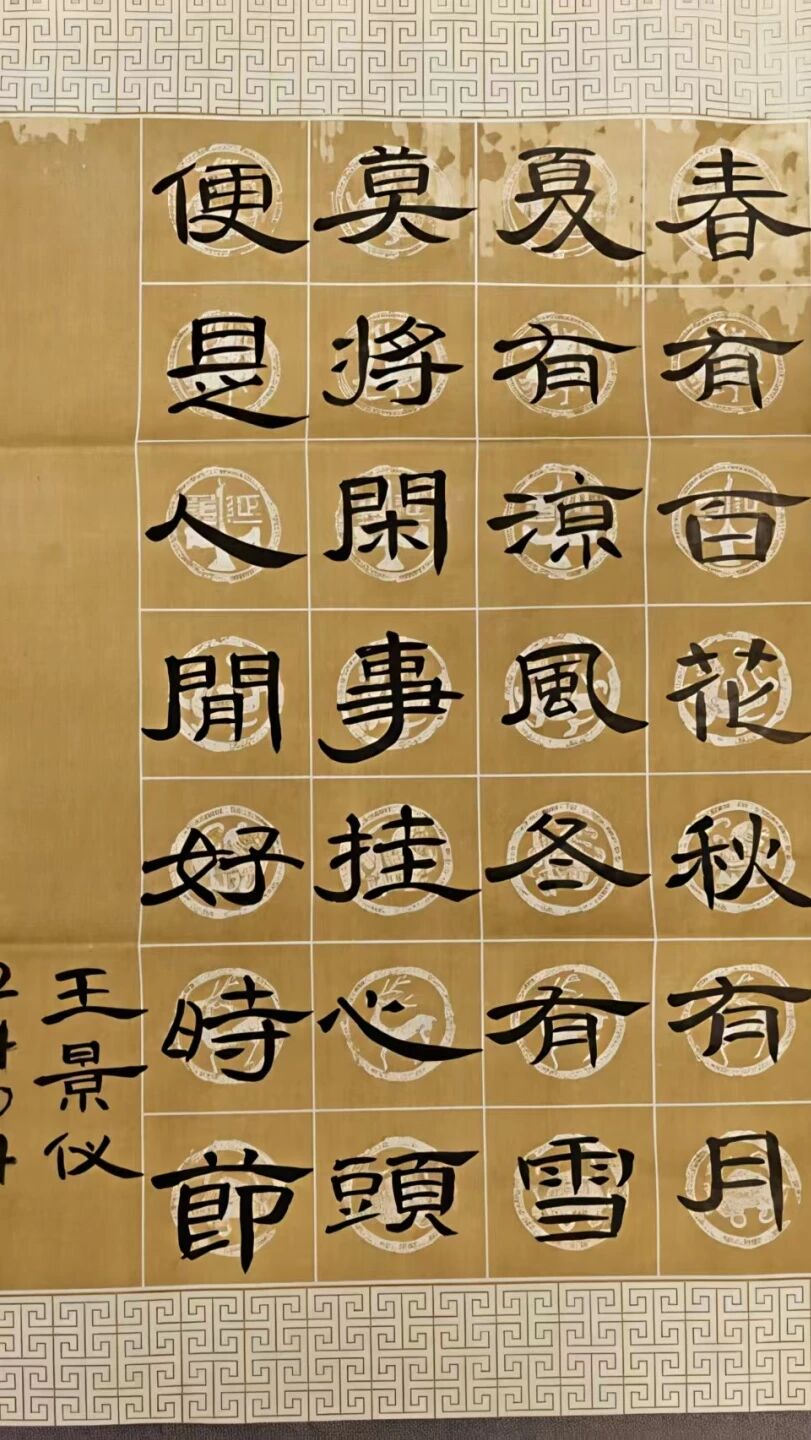 春有百花秋有月
夏有涼風冬有雪
莫将閑事挂心頭
便是人閒好時節
王景仪